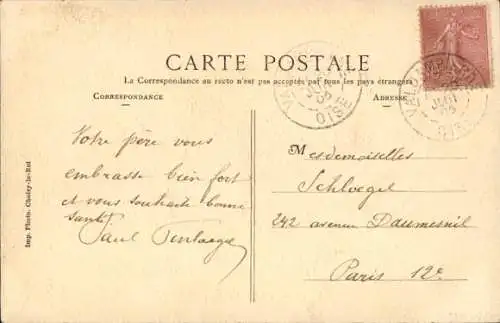 CARTE POSTALE
La Correspondance au recto n'est pas acceptée par tous les pays étrangers
CORRESPONDANCE
ADRESSE
Votre père vous
embrasse bien fort
et vous souhaite bonne
santé
Paul
Mesdemoiselles
Schloegel
242 avenue Daumesnil
Paris 12e
Imp. Photo. Choisy-le-Roi
OISE